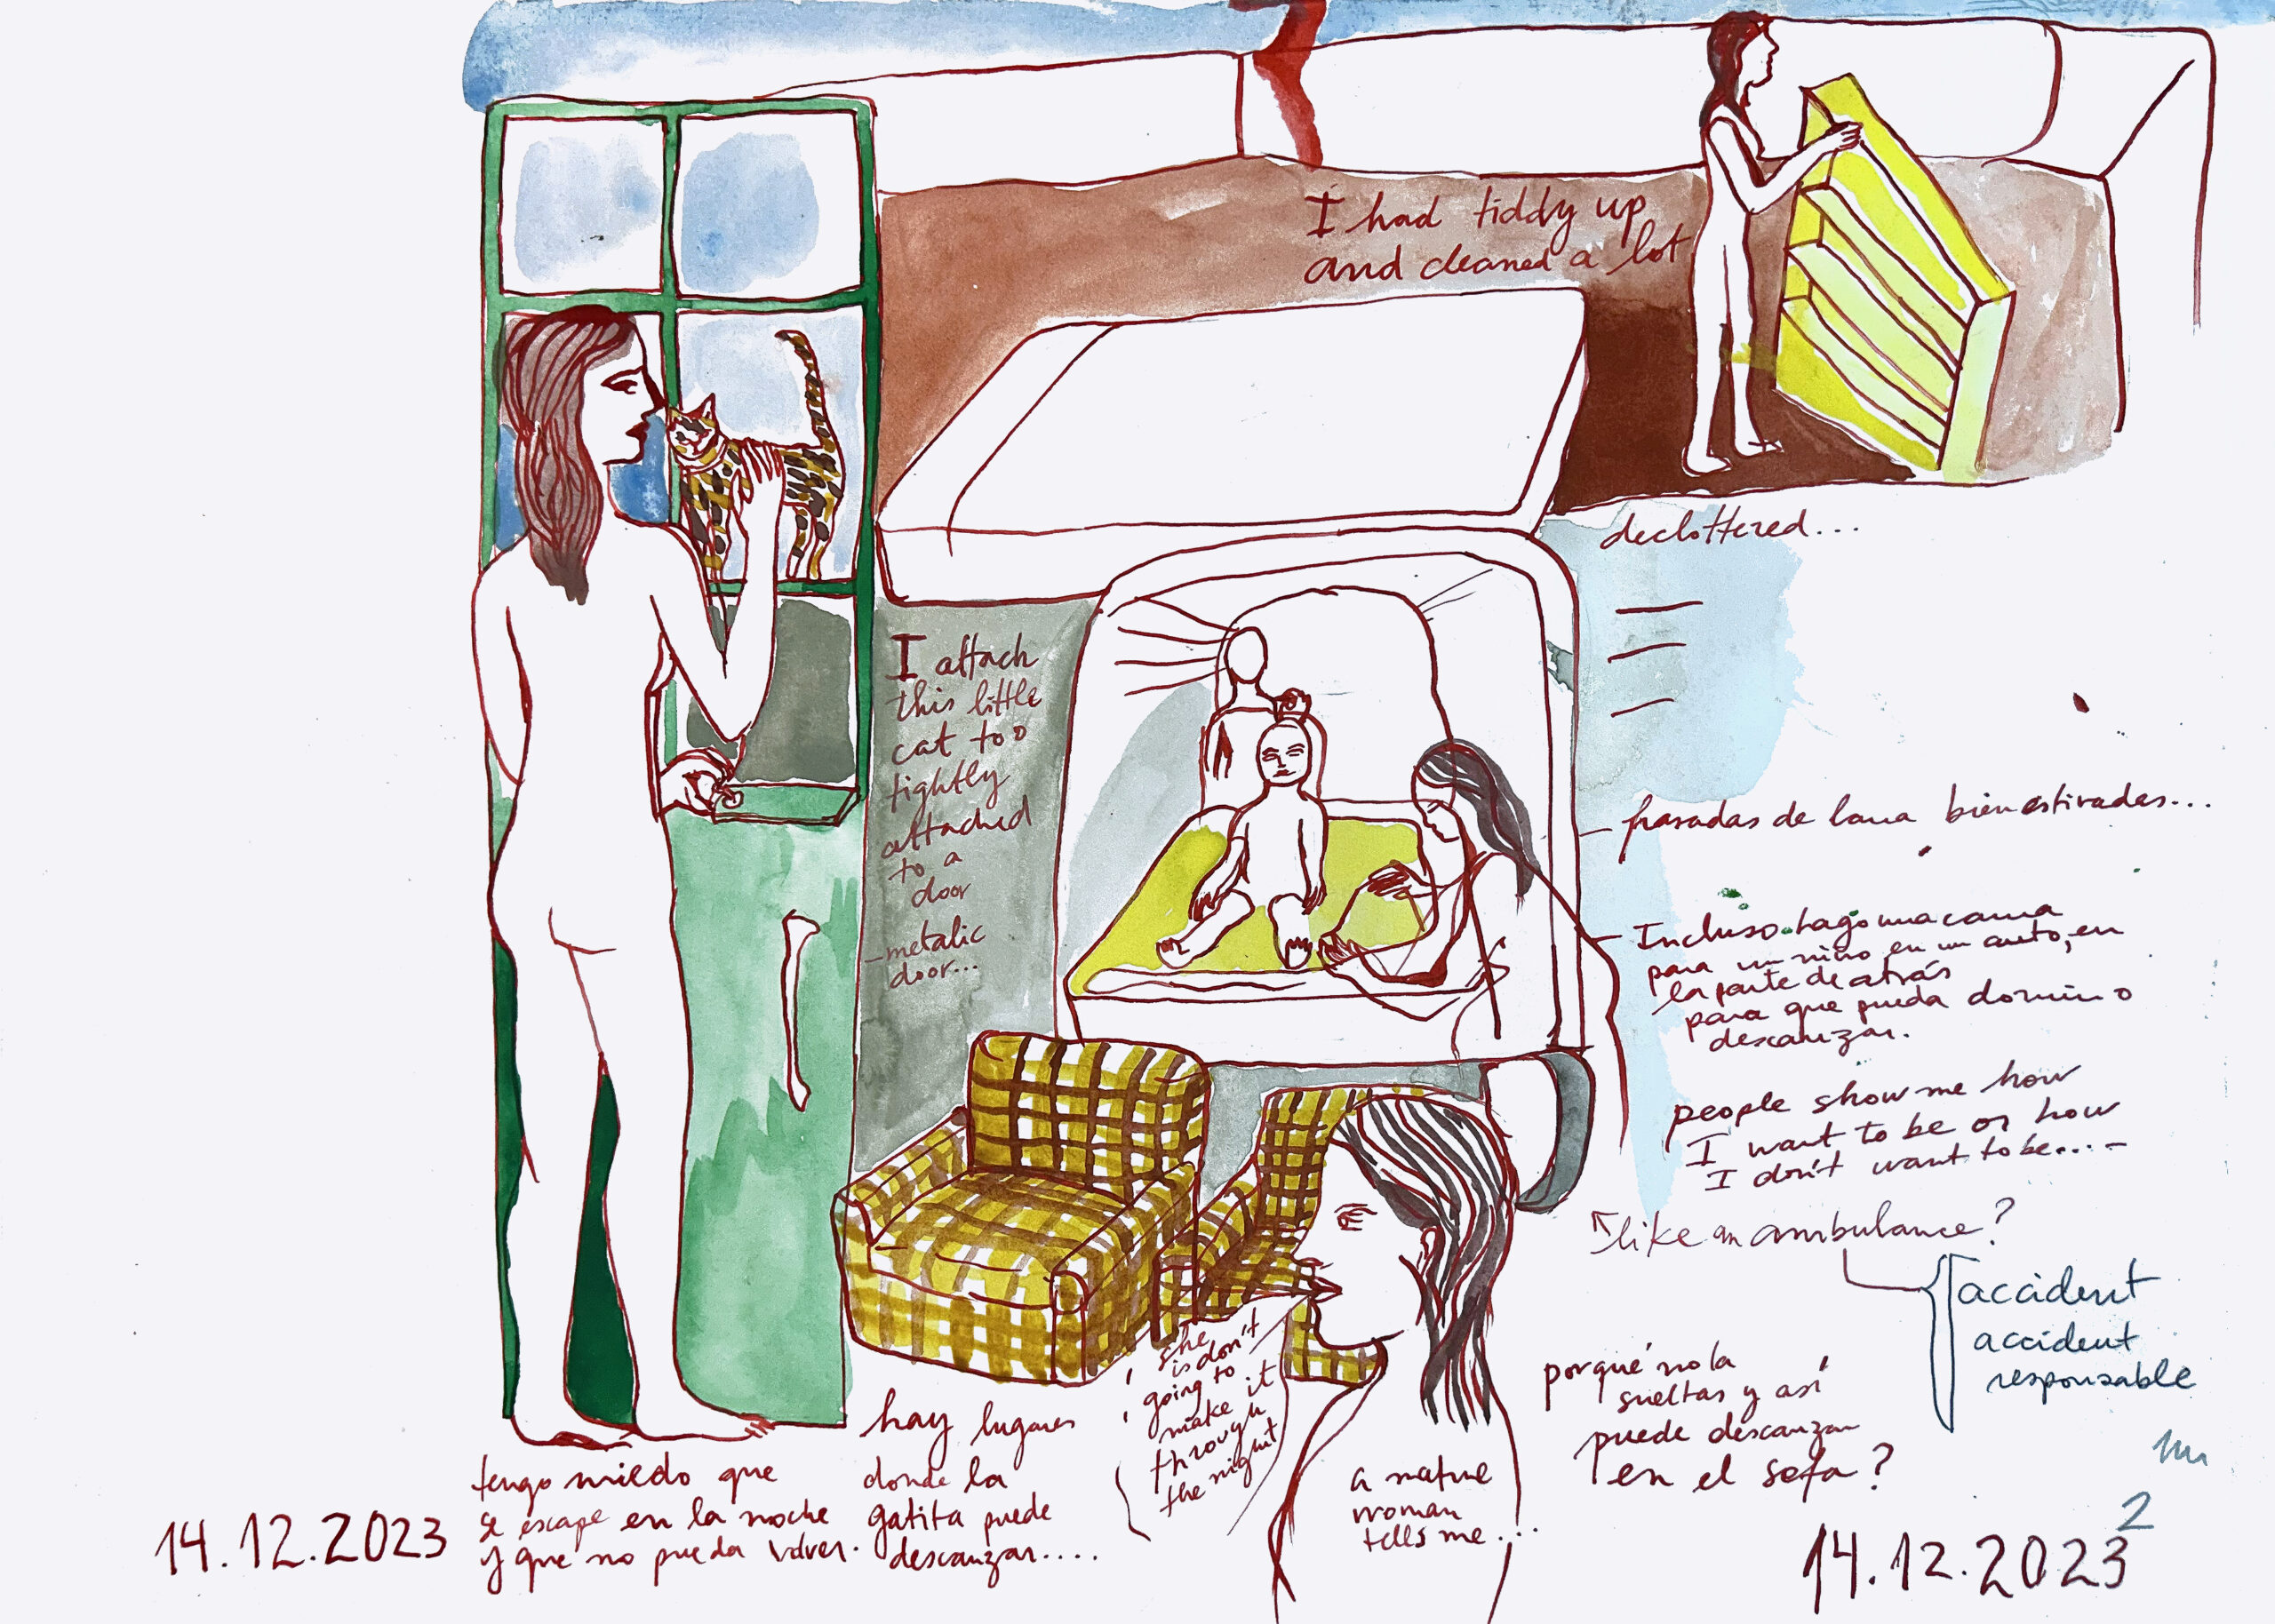 I had tiddy up
and cleaned a lot
declottered...
I attach
this little
cat too
tightly
attached
to a
door
-metalic
door...
- frasadas de lana bien estiradas...
- Incluso hago una cama
para un niño en un auto, en
la parte de atrás
para que pueda dormir o
descanzar.
people show me how
I want to be or how
I don't want to be....-
like an ambulance?
accident
accident
responsable
porqué no la
sueltas y así
puede descanzar
en el sofa?
she
is don't
going to
make it
through
the night
a mature
woman
tells me...
hay lugares
donde la
gatita puede
descanzar....
tengo miedo que
se escape en la noche
y que no pueda volver.
14.12.2023
2
14.12.2023